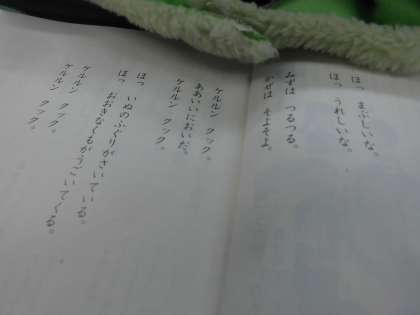 ほっ まぶしいな。
ほっ うれしいな。
みずは つるつる。
かぜは そよそよ。
ケルルン クック。
ああいいにおいだ。
ケルルン クック。
ほっ いぬのふぐりがさいている。
ほっ おおきなくもがうごいてくる。
ケルルン クック。
ケルルン クック。